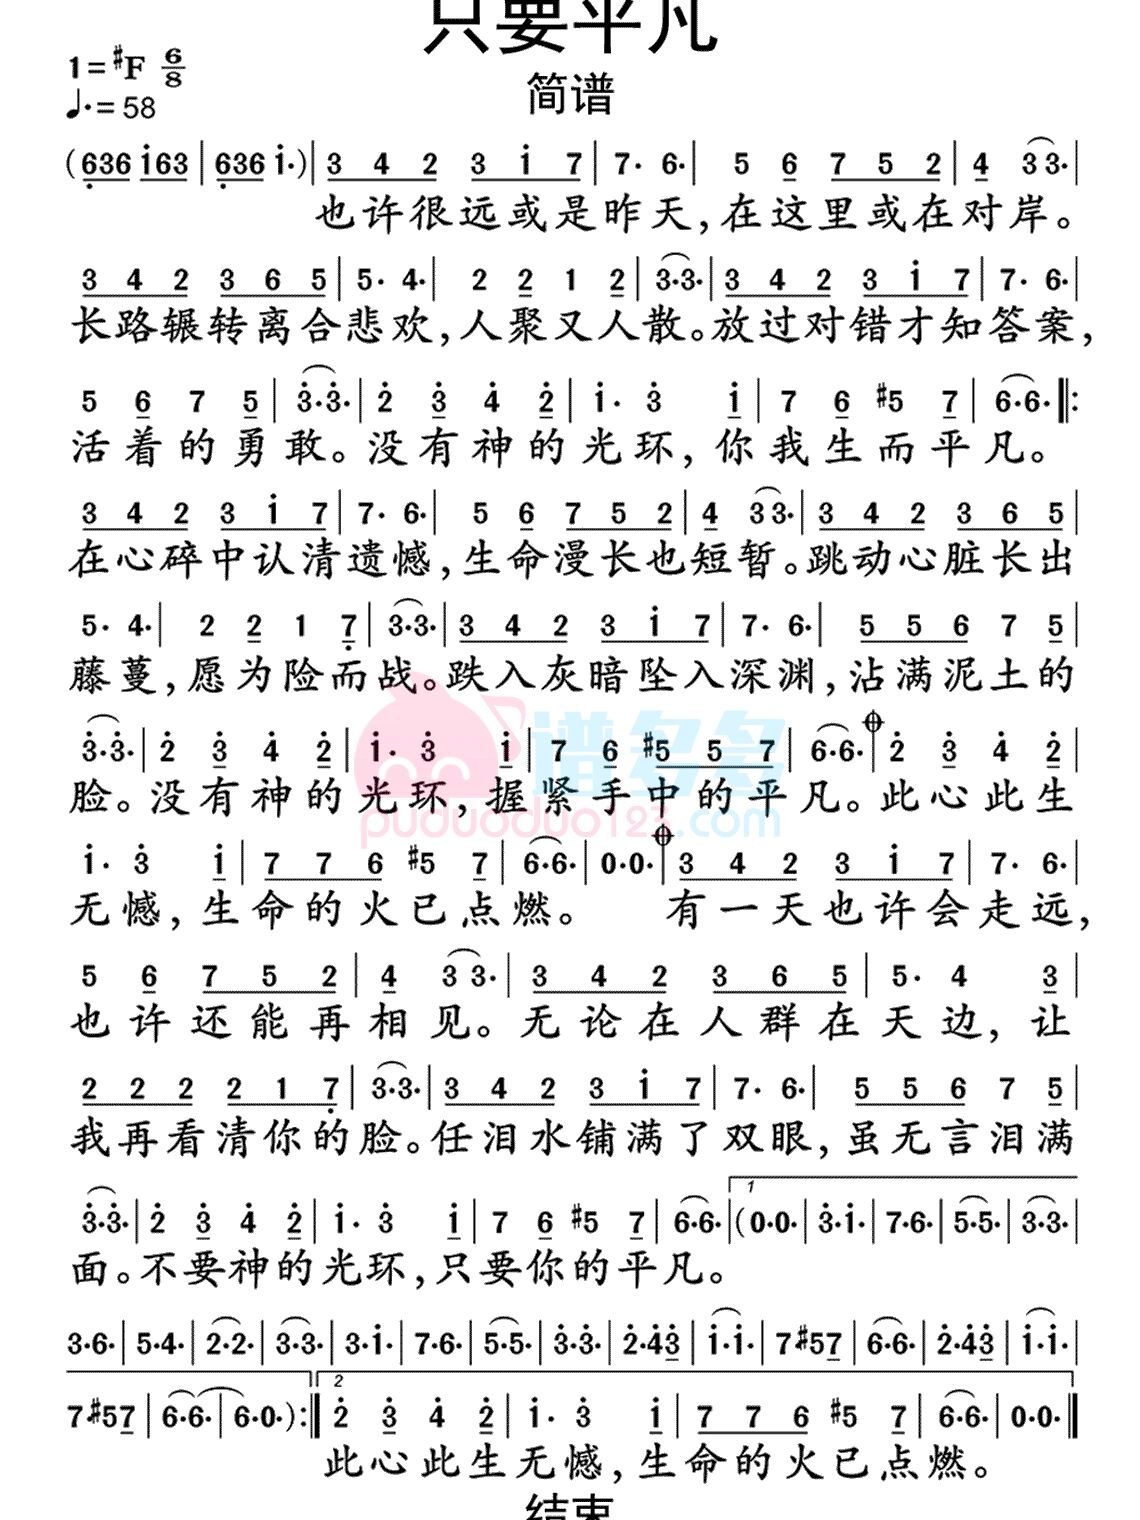 只要平凡
简谱
1=#F 6/8
♩.=58
(636 i63|636 i·)|3 4 2 3 i 7|7· 6·|5 6 7 5 2|4 3 3·|
也许很远或是昨天,在这里或在对岸。
3 4 2 3 6 5|5· 4·|2 2 1 2|3·3·|3 4 2 3 i 7|7· 6·|
长路辗转离合悲欢,人聚又人散。放过对错才知答案,
5 6 7 5|3̇·3̇·|2̇ 3̇ 4̇ 2̇|i· 3̇ i|7 6 #5 7|6·6·‖:
活着的勇敢。没有神的光环,你我生而平凡。
3 4 2 3 i 7|7· 6·|5 6 7 5 2|4 3 3·|3 4 2 3 6 5|
在心碎中认清遗憾,生命漫长也短暂。跳动心脏长出
5· 4·|2 2 1 7̣|3·3·|3 4 2 3 i 7|7· 6·|5 5 6 7 5|
藤蔓,愿为险而战。跌入灰暗坠入深渊,沾满泥土的
3̇·3̇·|2̇ 3̇ 4̇ 2̇|i· 3̇ i|7 6 #5 5 7|6·6·|2̇ 3̇ 4̇ 2̇|
脸。没有神的光环,握紧手中的平凡。此心此生
谱多多
puduoduo123.com
i· 3̇ i|7 7 6 #5 7|6·6·|0·0·|3 4 2 3 i 7|7· 6·|
无憾,生命的火已点燃。 有一天也许会走远,
5 6 7 5 2|4 3 3·|3 4 2 3 6 5|5· 4 3|
也许还能再相见。无论在人群在天边,让
2 2 2 2 1 7̣|3·3·|3 4 2 3 i 7|7· 6·|5 5 6 7 5|
我再看清你的脸。任泪水铺满了双眼,虽无言泪满
1
3̇·3̇·|2̇ 3̇ 4̇ 2̇|i· 3̇ i|7 6 #5 7|6·6·|(0·0·|3̇·i·|7·6·|5·5·|3·3·|
面。不要神的光环,只要你的平凡。
3·6·|5·4·|2·2·|3·3·|3·i·|7·6·|5·5·|3̇·3̇·|2̇·4̇3̇|i·i·|7#57|6·6·|2̇·4̇3̇|i·i·|
2
7#57|6·6·|6·0·):‖2̇ 3̇ 4̇ 2̇|i· 3̇ i|7 7 6 #5 7|6·6·|0·0·‖
此心此生无憾,生命的火已点燃。
结束